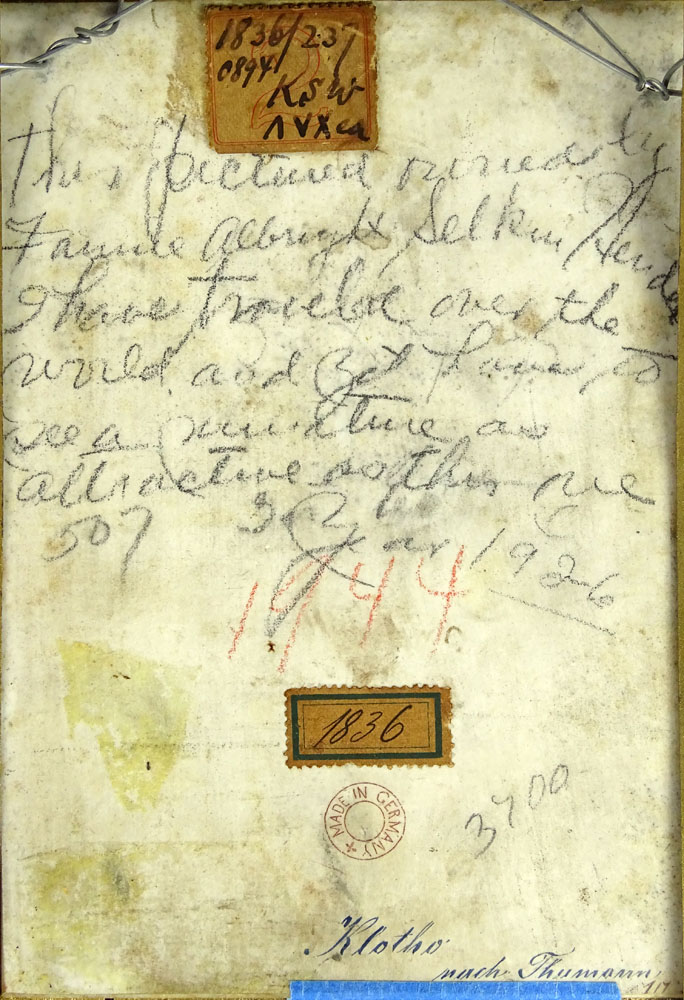 1836/237
0894
KSW
This pictured owned by
Fannie Albright Selkin
I have traveled over the
world and yet have to
see a miniature as
attractive as this one
507
Year 1926
1944
1836
MADE IN GERMANY
3700
Klotho
nach Thumann